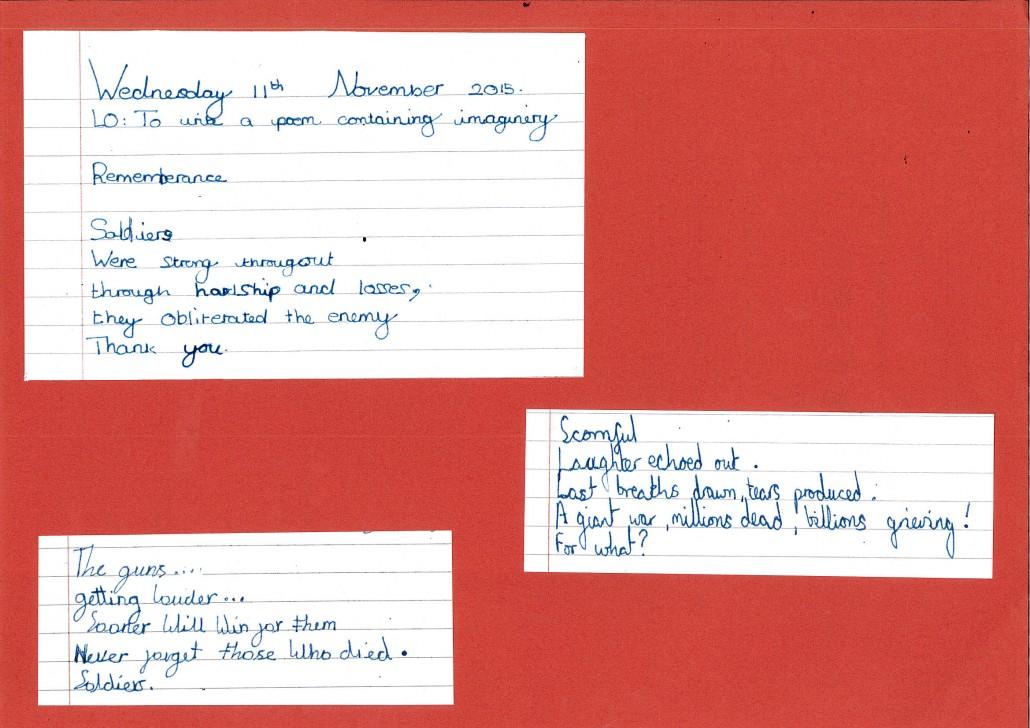 Wednesday 11th November 2015.
LO: To write a poem containing imaginery
Rememberance
Soldiers
Were strong througout
through hardship and losses,
they obliterated the enemy
Thank you.
Scornful
Laughter echoed out.
Last breaths drawn, tears produced.
A giant war, millions dead, billions grieving!
For what?
The guns....
getting louder...
Will Win for them
Never forget those Who died.
Soldiers.